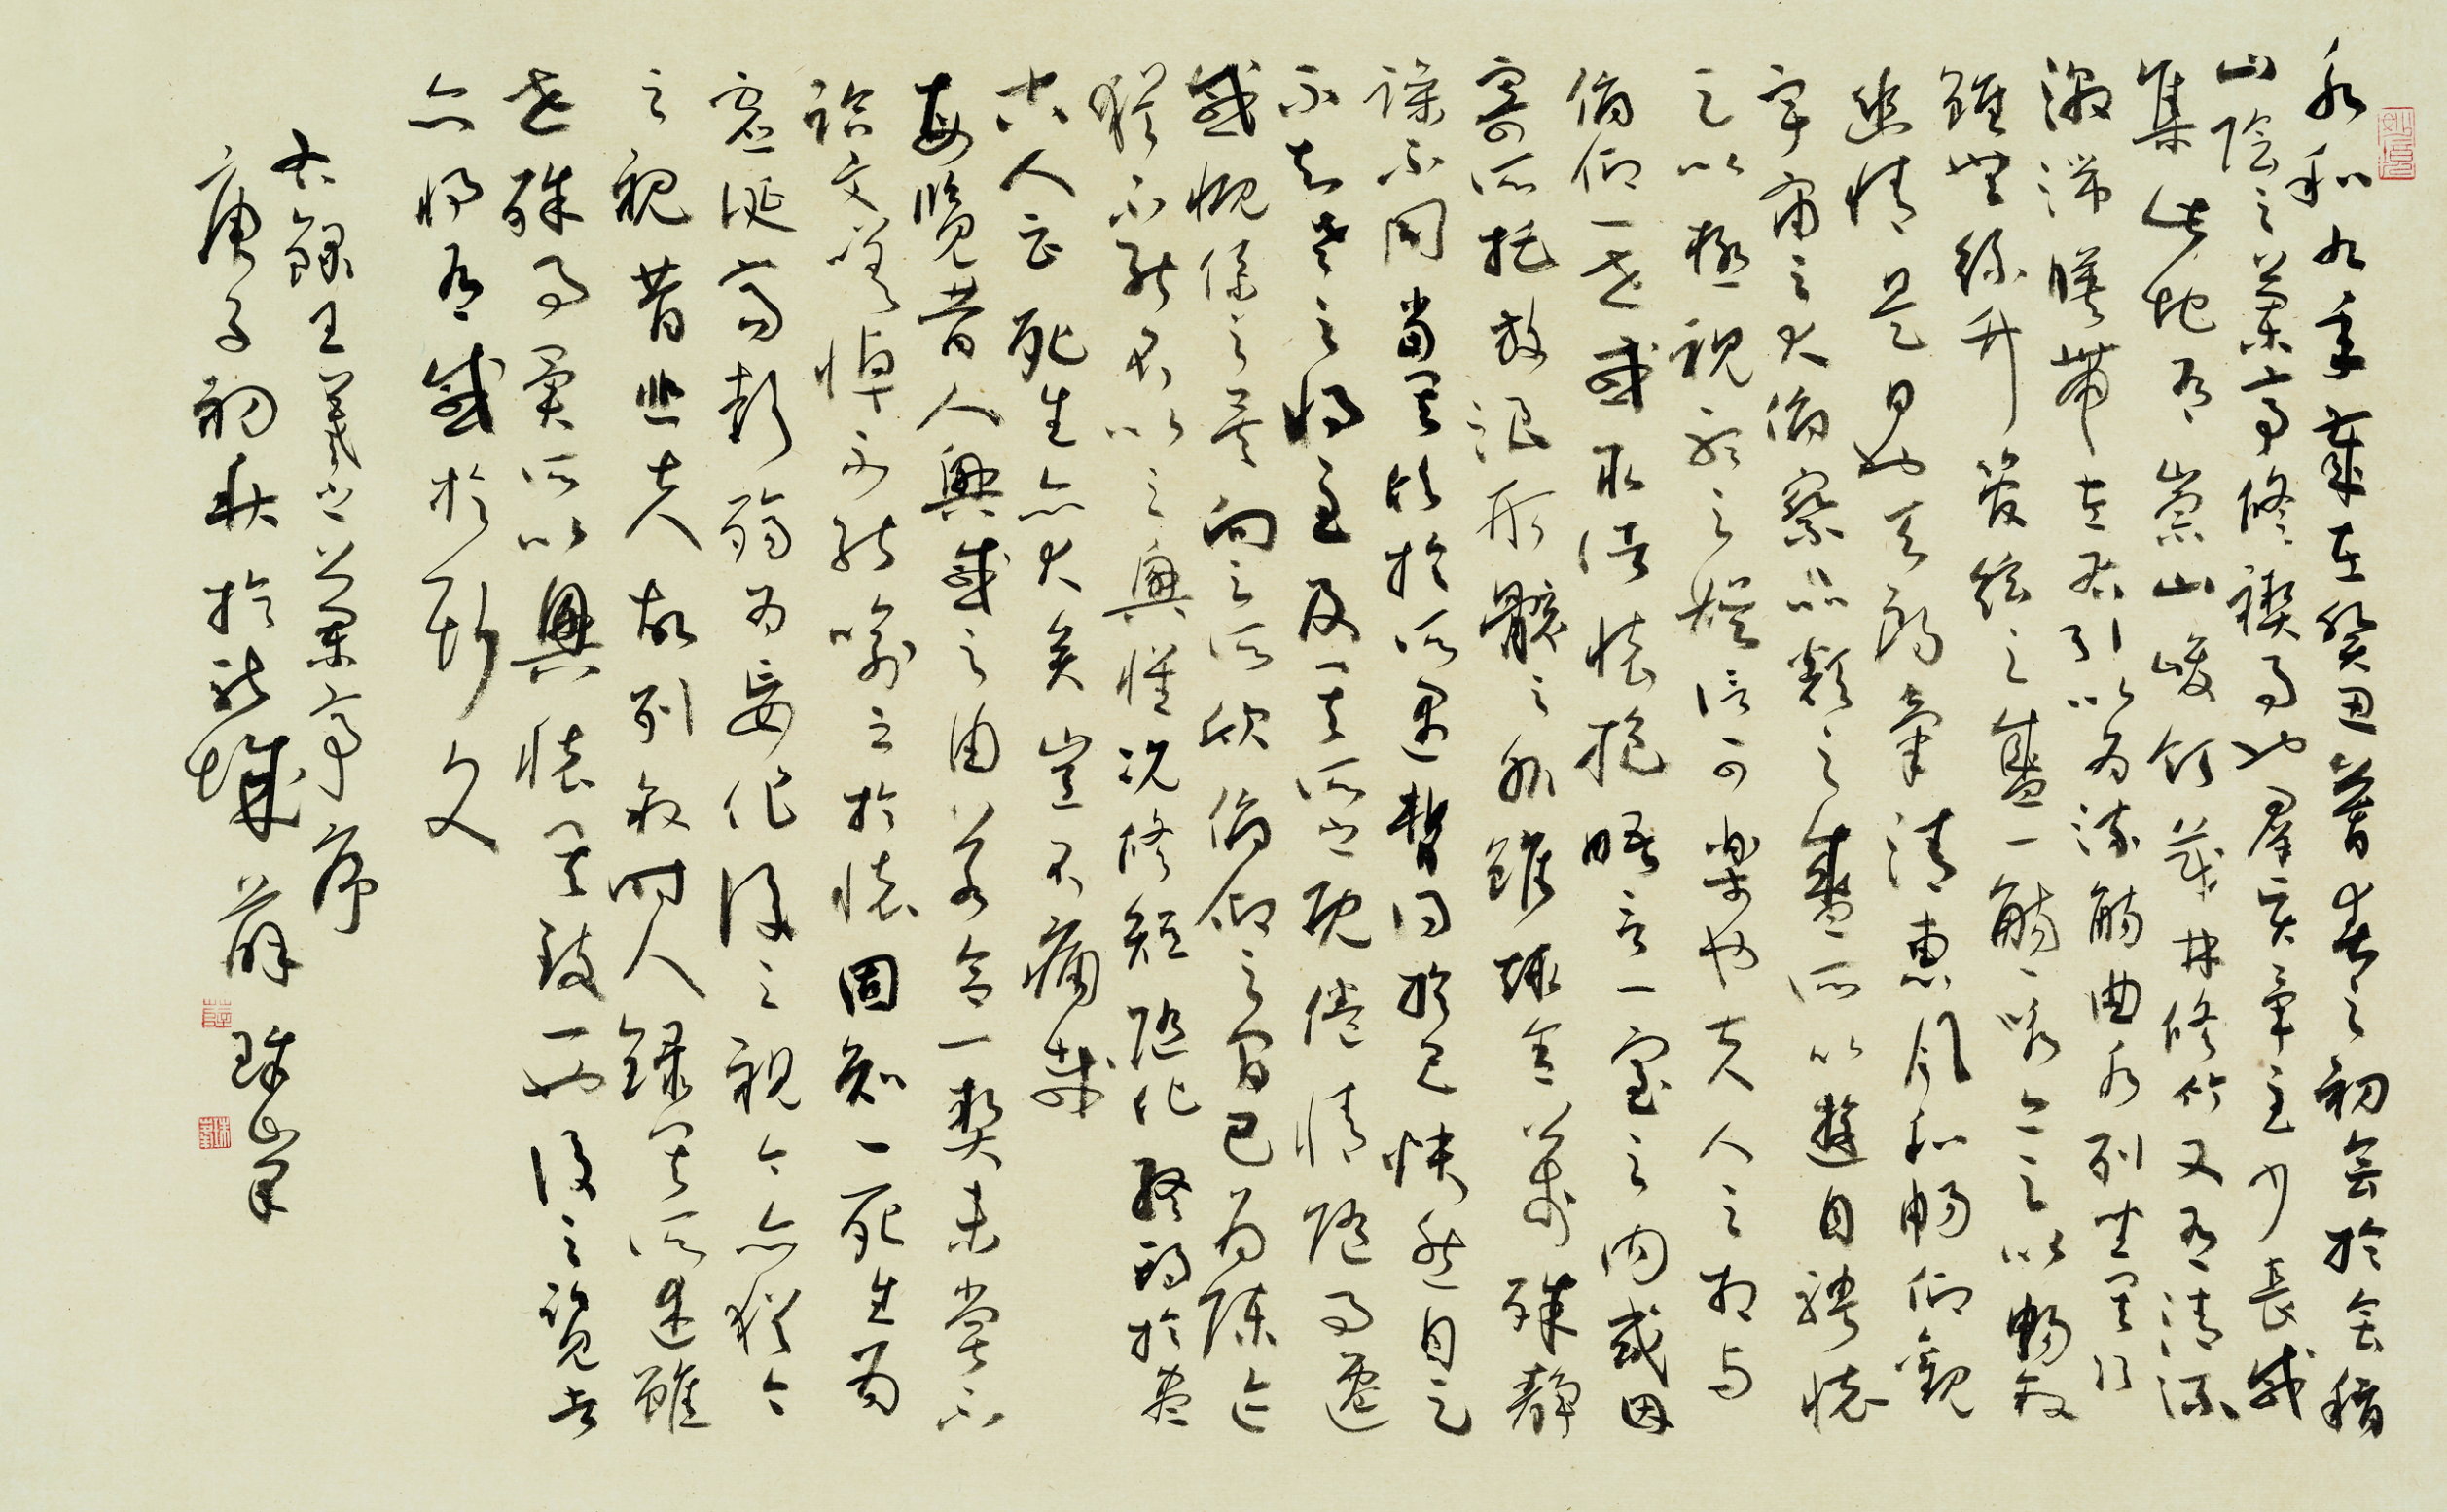 永和九年歲在癸丑暮春之初會於會稽
山陰之蘭亭修禊事也群賢畢至少長咸
集此地有崇山峻領茂林修竹又有清流
激湍暎帶左右引以為流觴曲水列坐其次
雖無絲竹管絃之盛一觴一詠亦足以暢敘
幽情是日也天朗氣清惠風和暢仰觀
宇宙之大俯察品類之盛所以遊目騁懷
足以極視聽之娛信可樂也夫人之相與
俯仰一世或取諸懷抱晤言一室之內或因
寄所托放浪形骸之外雖趣舍萬殊靜
躁不同當其欣於所遇暫得於己怏然自足
不知老之將至及其所之既倦情隨事遷
感慨係之矣向之所欣俯仰之間已為陳迹
猶不能不以之興懷況修短隨化終期於盡
古人云死生亦大矣豈不痛哉
每覽昔人興感之由若合一契未嘗不
臨文嗟悼不能喻之於懷固知一死生為
虛誕齊彭殤為妄作後之視今亦猶今
之視昔悲夫故列敘時人錄其所述雖
世殊事異所以興懷其致一也後之覽者
亦將有感於斯文
右錄王羲之蘭亭序
庚子初秋於龍城薛珠峯